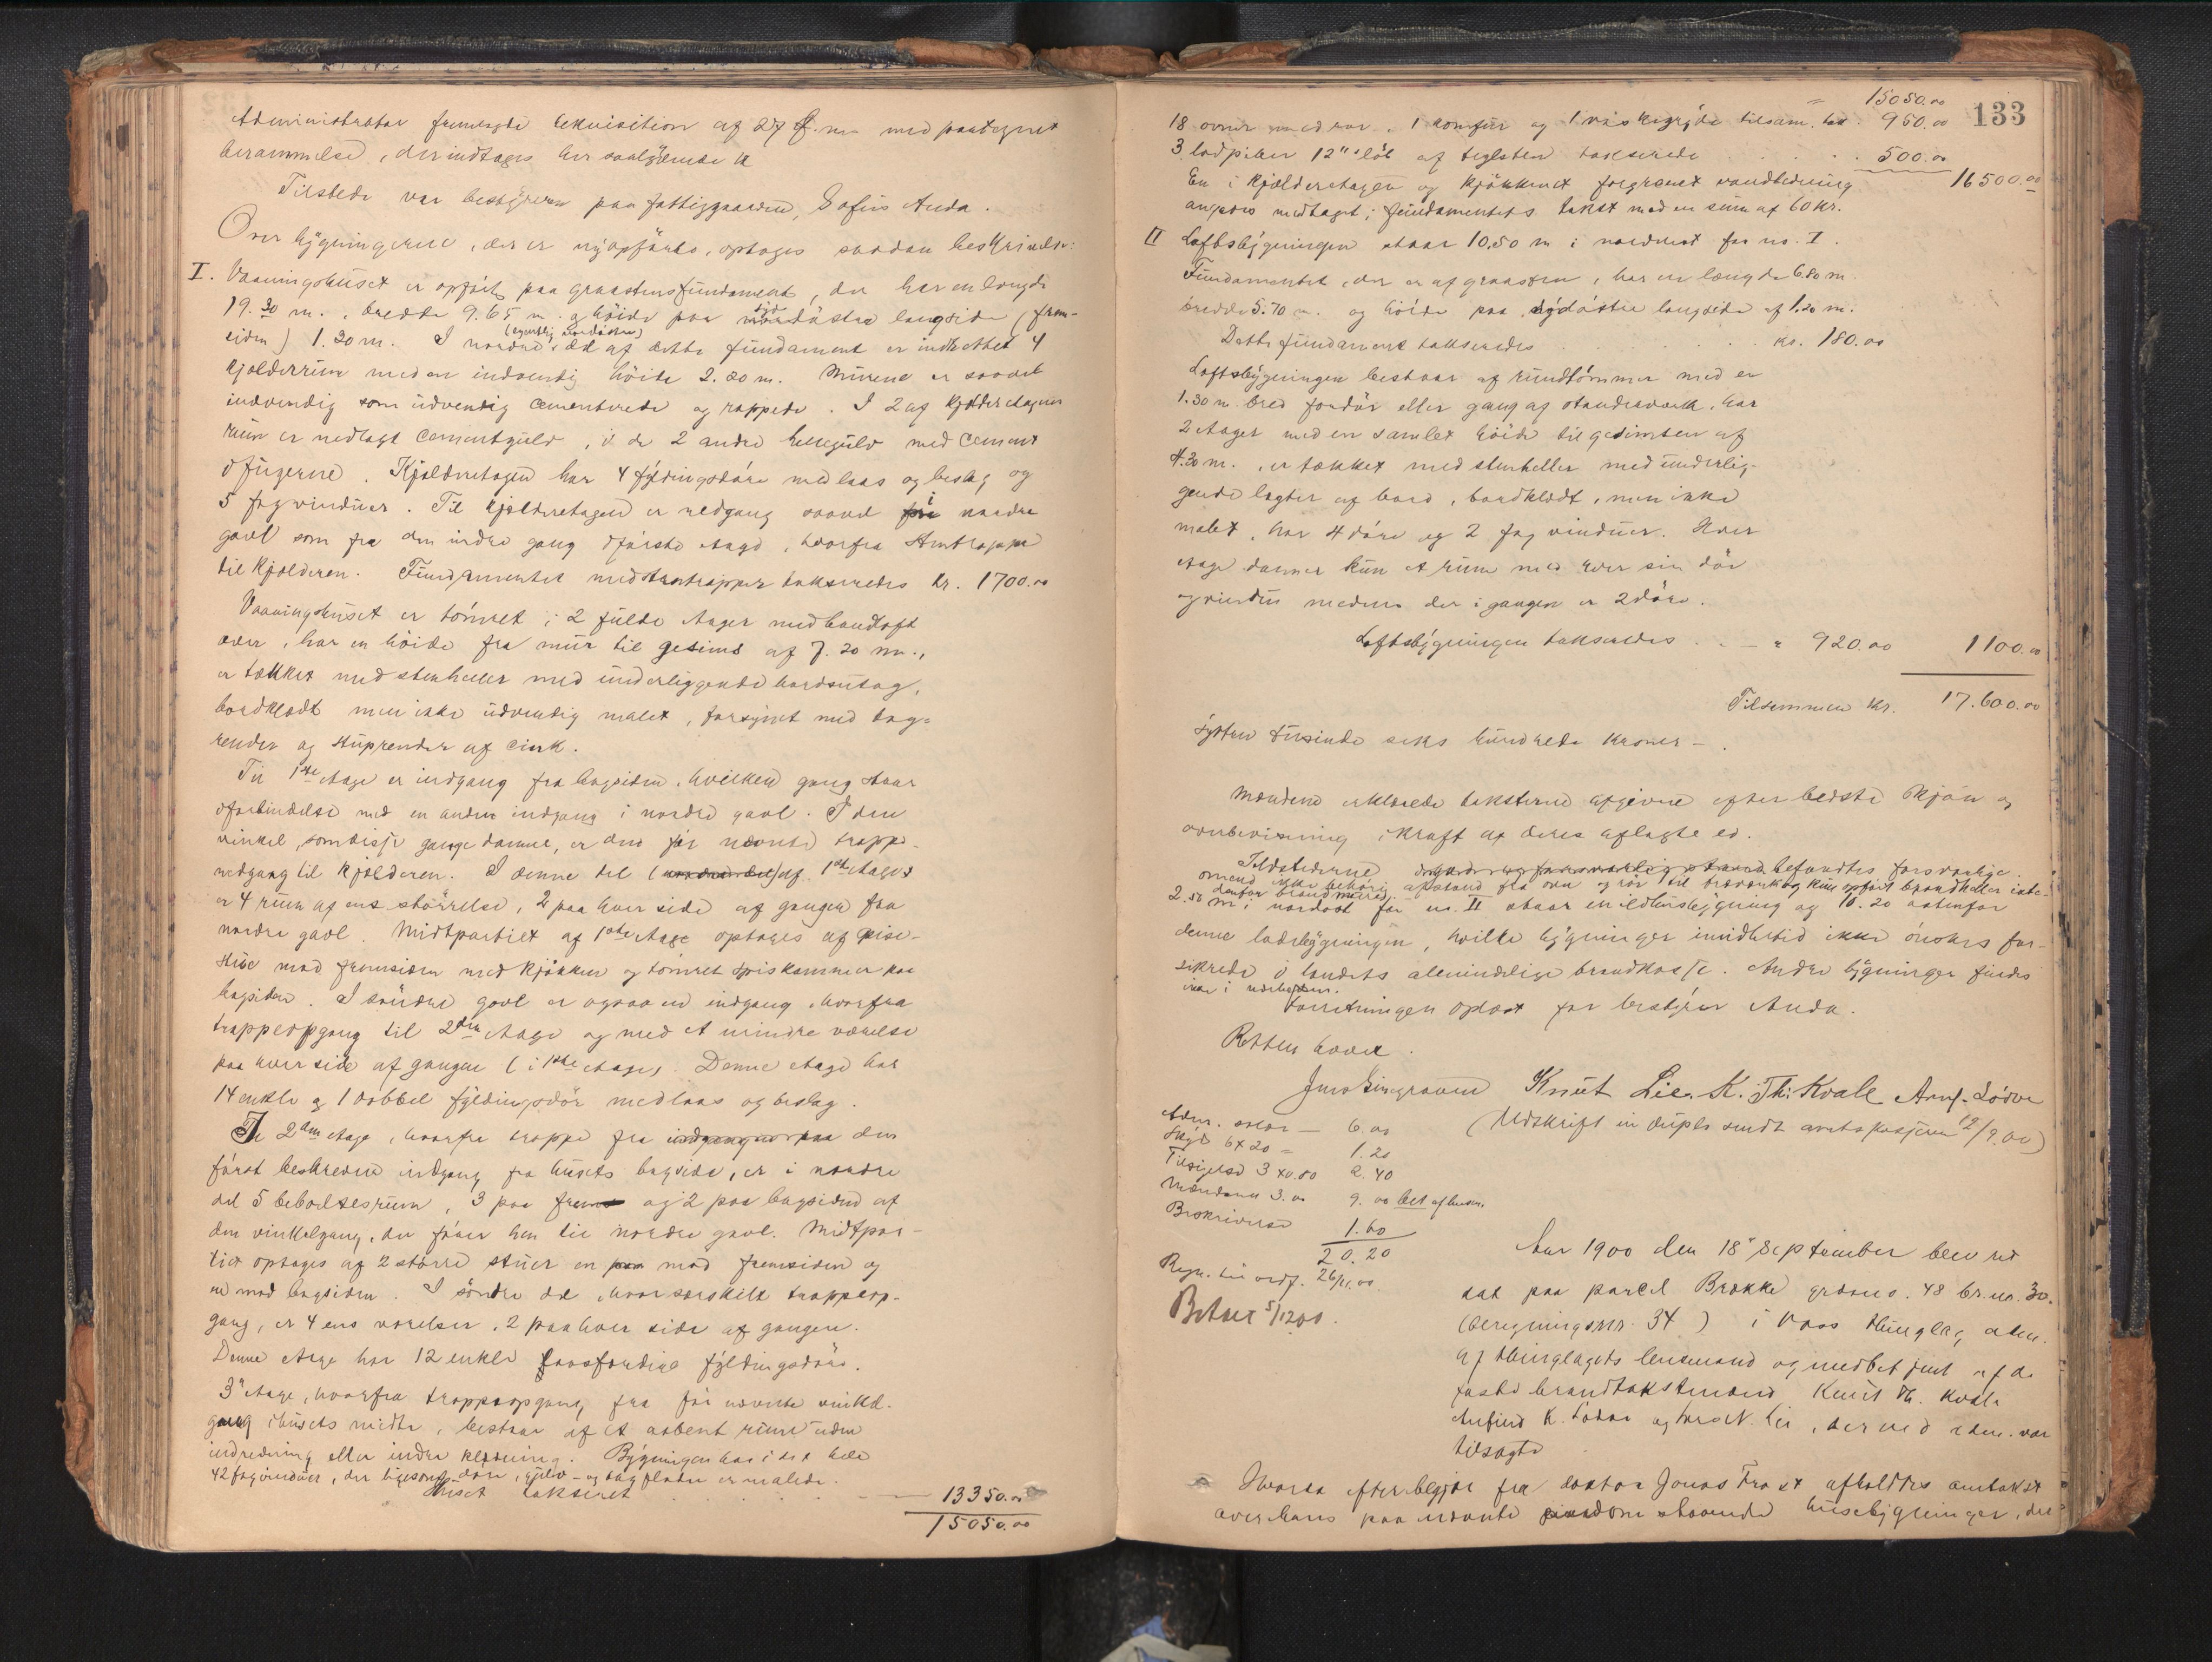 Administrator fremlagde rekvisition af 27 f.m. med paategnet
berammelse, der indtages her saalydende #
Tilstede var bestyreren paa fattiggaarden, Sofus Anda.
Over bygningerne, der er nyopførte, optages saadan beskrivelse:
I. Vaaningshuset er opført paa graastensfundament, der har en længde
19.30 m., bredde 9.65 m. og høide paa sydøstre langside (frem-
siden) 1.20 m. I nordre (egentlig nordøstre) del af dette fundament er indrettet 4
kjælderrum med en indvendig høide 2.20 m. Murene er saavel
indvendig som udvendig cementerede og rappede. I 2 af kjælderetagens
rum er nedlagt cementgulv, i de 2 andre hellegulv med cement
i fugerne. Kjælderetagen har 4 fyldingsdøre med laas og beslag og
5 fag vinduer. Til kjælderetagen er nedgang saavel i nordre
gavl som fra den indre gang i første etage, hvorfra stentrappe
til kjælderen. Fundamentet med stentrapper takseredes kr. 1700.00
Vaaningshuset er tømret i 2 fulde etager med bordloft
over, har en høide fra mur til gesims af 7.20 m.,
er tækket med stenheller med underliggende bordsutag,
bordklædt men ikke udvendig malet, forsynet med tag-
render og stuprender af cink.
Til 1ste etage er indgang fra bagsiden, hvilken gang staar
i forbindelse med en anden indgang i nordre gavl. I den
vinkel, som disse gange danne, er den før nævnte trappe-
nedgang til kjælderen. I denne del (nordre del) af 1ste etage
er 4 rum af ens størrelse, 2 paa hver side af gangen fra
nordre gavl. Midtpartiet af 1ste etage optages af spise-
stue mod fremsiden med kjøkken og tømret spiskammer paa
bagsiden. I søndre gavl er ogsaa en indgang, hvorfra
trappeopgang til 2den etage og med et mindre værelse
paa hver side af gangen (i 1ste etage). Denne etage har
14 enkle og 1 dobbel fyldingsdør med laas og beslag.
I 2den etage, hvorfra trappe fra indgangen paa den
først beskrevne indgang fra husets bagside, er i nordre
del 5 beboelsesrum, 3 paa frem og 2 paa bagsiden af
den vinkelgang, der fører hen til nordre gavl. Midtpar-
tiet optages af 2 større stuer en paa mod fremsiden og
en mod bagsiden. I søndre del, hvor særskilt trappeop-
gang, er 4 ens værelser, 2 paa hver side af gangen.
Denne etage har 12 enkle laasfærdige fyldingsdøre.
3' etage, hvorfra trappeopgang fra før nævnte vinkel-
gang i husets midte, bestaar af et aabent rum uden
indredning eller indre klædning. Bygningen har i det hele
42 fag vinduer, der ligesom døre, gulv- og tagflader er malede.
Huset takseret 13350.00
15050.00
133
15050.00
18 ovner med rør, 1 komfur og 1 vaskegryde tilsam. tax. 950.00
3 ladpiber 12" løb af teglsten takserede 500.00
16500.00
En i kjælderetagen og kjøkkenet forgrenet vandledning
angives medtaget i fundamentets takst med en sum af 60 kr.
II Loftsbygningen staar 10.50 m i nordvest for no. I.
Fundamentet, der er af graasten, har en længde 6.80 m.
bredde 5.70 m. og høide paa sydøstre langside af 1.20 m.
Dette fundament takseredes kr. 180.00
Loftsbygningen bestaar af rundtømmer med en
1.30 m. bred fordør eller gang af standerværk, har
2 etager med en samlet høide til gesimsen af
4.30 m., er tækket med stenheller med underlig-
gende lagter af bord, bordklædt, men ikke
malet, har 4 døre og 2 fag vinduer. Hver
etage danner kun et rum med hver sin dør
og vindu medens der i gangen er 2 døre.
Loftsbygningen takseredes - " 920.00 1100.00
Tilsammen kr. 17.600.00
Sytten tusinde seks hundrede kroner - .
Mændene erklærede taksterne afgivne efter bedste skjøn og
overbevisning i kraft af deres aflagte ed.
Ildstederne befandtes forsvarlige.
omend ikke behørig afstand fra ovn og rør til træværk og kun opført brandheller iste-
denfor brandmure.
2.50 m i nordost for no. II staar en ildhusbygning og 10.20 østenfor
denne ladebygningen, hvilke bygninger imidlertid ikke ønskes for-
sikrede i landets almindelige brandkasse. Andre bygninger findes
ikke i nærheden.
Forretningen oplæst for bestyrer Anda.
Retten hævet.
Knut Lie. K. Th: Kvale Arnf. Lødve
(Udskrift in duplo sendt amtskasjeren 12/9.00)
Adm. salær — 6.00
Skyds 6 x 20 = 1.20
Tilsigelse 3 x 0.80 2.40
Mændene 3.00 9.00 bet af lensm.
Beskrivelse 1.60
20.20
Regn. til ordf. 26/11.00
Betalt 5/12 00.
Aar 1900 den 18' September blev ret
sat paa parcel Brække grdsno. 48 br.no. 30.
(beregningsnr. 34) i Voss thinglag, adm.
af thinglagets lensmand og medbetjent af de
faste brandtakstmænd Knut Th. Kvale
Arnfind K. Lødve og Lars N. Lie, der ved adm. var
tilsagte
Hvorda efter begjær fra doktor Jonas Frost afholdtes omtakst
over hans paa nævnte eiendom staaende husebygninger, der